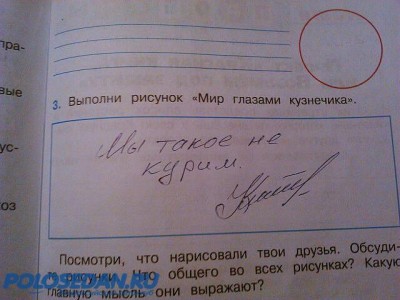 пра-
вые
3. Выполни рисунок «Мир глазами кузнечика».
ус-
Мы такое не
курим.
коз
Посмотри, что нарисовали твои друзья. Обсуди-
те рисунки. Что общего во всех рисунках? Какую
главную мысль они выражают?
POLOSEDAN.RU